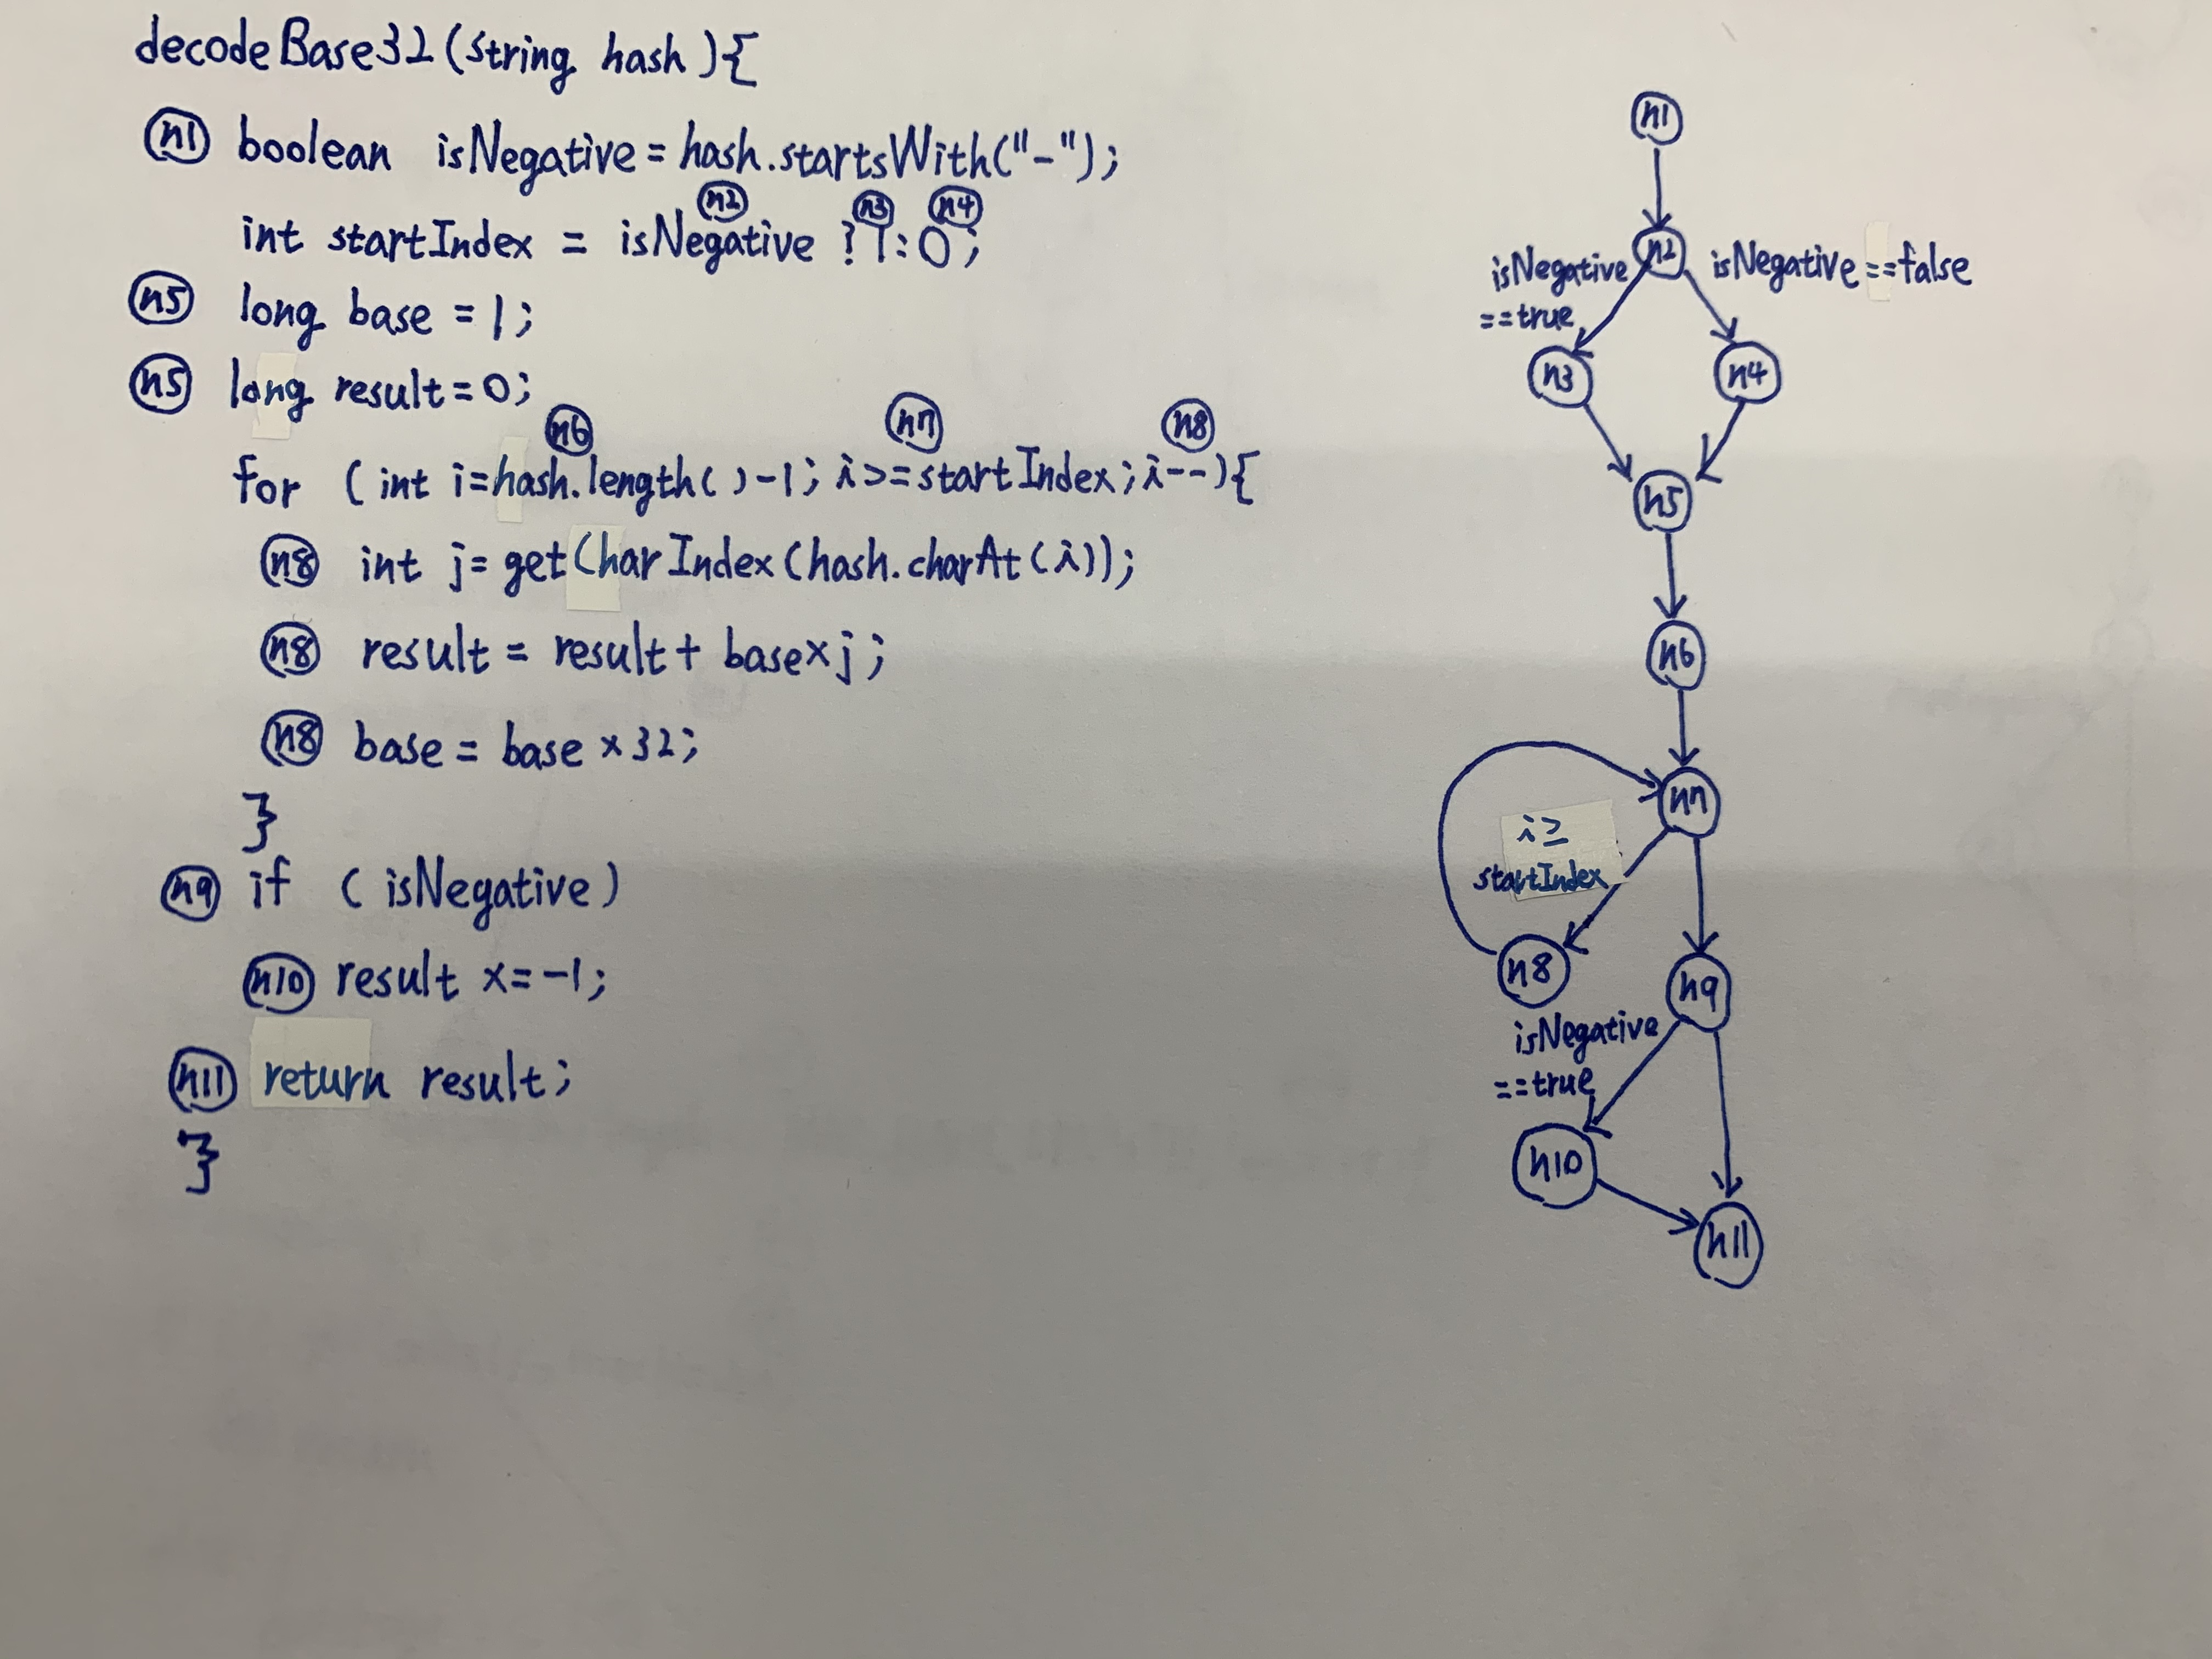 decodeBase32(string hash){
n1 boolean isNegative=hash.startsWith("-");
n2 n3 n4
int startIndex = isNegative ?1:0;
n5 long base =1;
n5 long result=0;
n6 n7 n8
for (int i=hash.length()-1; i>=startIndex;i--){
n8 int j=getCharIndex(hash.charAt(i));
n8 result = result + base×j;
n8 base = base ×32;
}
n9 if (isNegative)
n10 result ×=-1;
n11 return result;
}
n1
n2
isNegative
==true
isNegative ==false
n3
n4
n5
n6
n7
i≥
startIndex
n8
n9
isNegative
==true
n10
n11